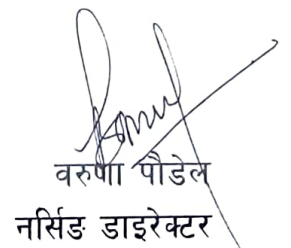 वरुणा पौडेल
नर्सिङ डाइरेक्टर